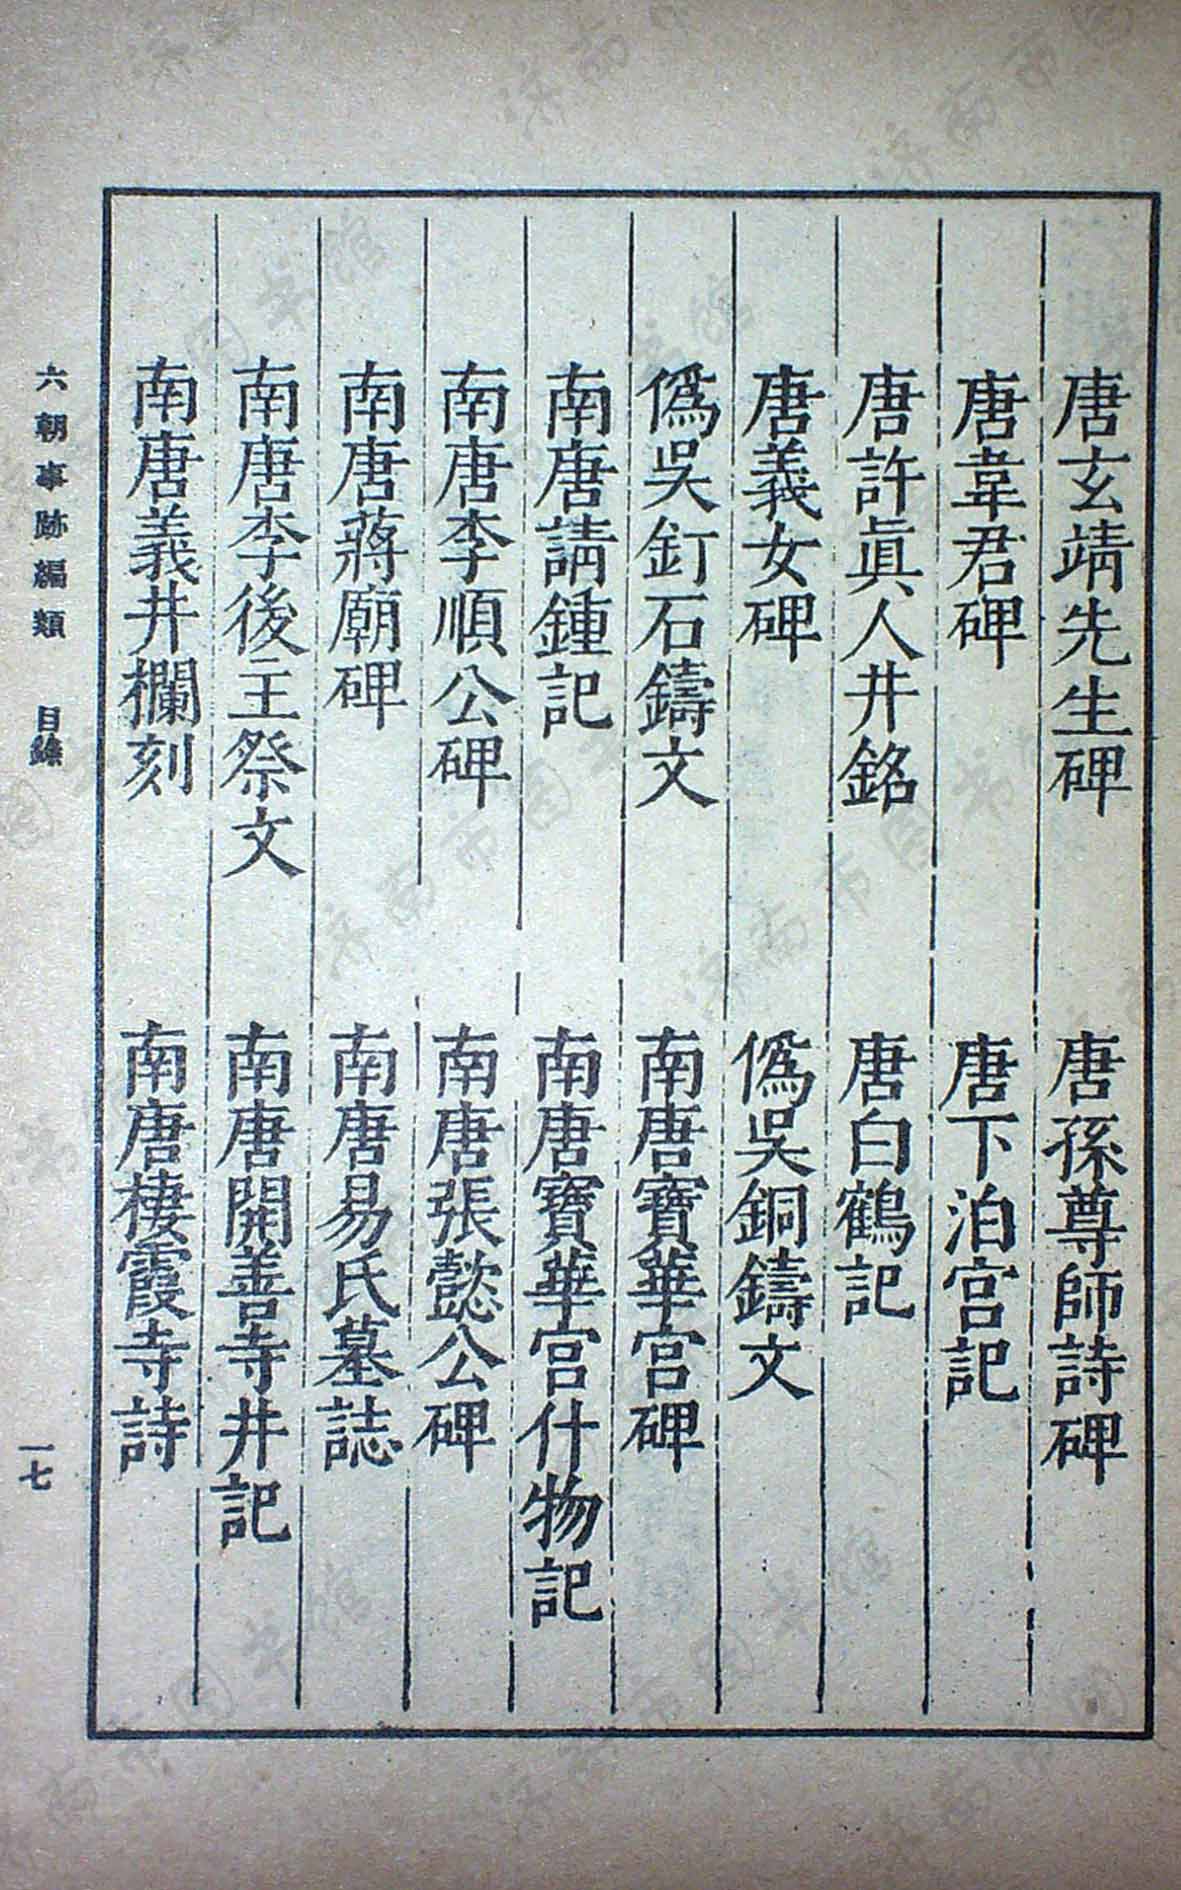 唐玄靖先生碑　唐孫尊師詩碑
唐韋君碑　唐下泊宮記
唐許眞人井銘　唐白鶴記
唐義女碑　僞吳銅鑄文
僞吳釘石鑄文　南唐寶華宮碑
南唐請鍾記　南唐寶華宮什物記
南唐李順公碑　南唐張懿公碑
南唐蔣廟碑　南唐易氏墓誌
南唐李後主祭文　南唐開善寺井記
南唐義井欄刻　南唐棲霞寺詩
六朝事跡編類　目錄
一七
济南市图书馆